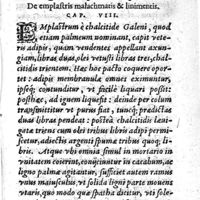 De emplastris malachmatis & linimentis.
CAP. VIII.
EMplastrum è chalcitide Galeni, quod
etiam palmeum nominant, capit vete-
ris adipis, quam vendentes appellant axun-
giam, libras duas, olei vetusti libras tres, chal-
citidis trientem. Hæc hoc pacto coquere opor-
tet: adipis membranulæ omnes eximuntur,
ipsaq; contunditur, vt facilè liquari possit:
posteaq; ad ignem liquefit: deinde per colum
transmittitur vt purus fiat, tuncq; prædictæ
duas libras pendet: postea chalcitidis læui-
gatæ trientem cum olei tribus libris adipi permi-
scetur, adiectis argenti spuma tribus quoq; li-
bris. Atque vbi omnia simul in mortario in
vnitatem coierint, conijciuntur in cacabum, ac
ligno palma agitantur, sufficiet autem ramus
vnus maiusculus, vt solida ligni parte mouen-
varis, quo modo qua spatha dicitur, vti sole-